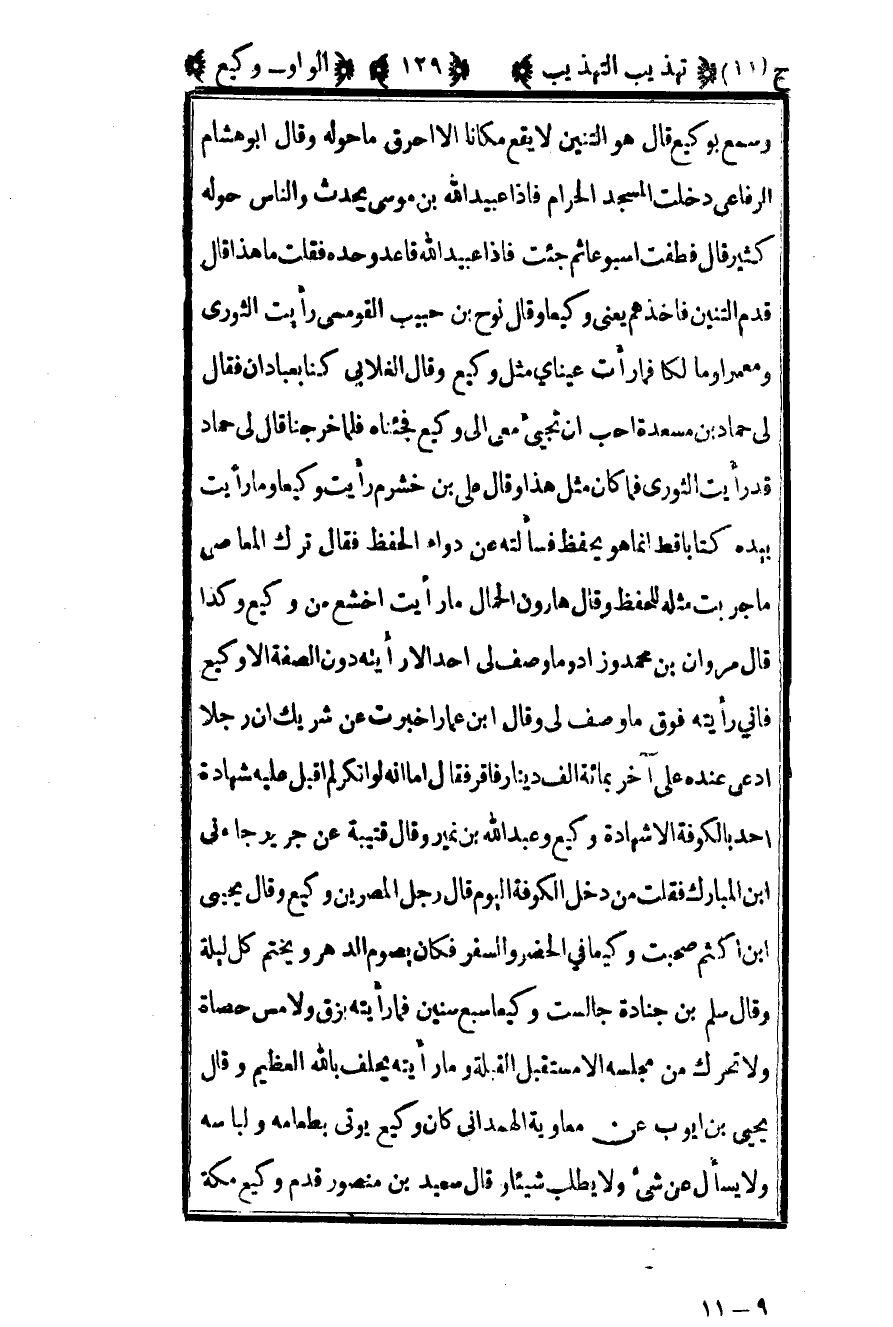 ج (١١) ﴿ تهذيب التهذيب ﴾ ﴿ ١٢٩ ﴾ ﴿ الواو ـ وكيع ﴾
وسمع بوكيع قال هو التنين لا يقع مكانا الا احرق ماحوله وقال ابوهشام
الرفاعي دخلت المسجد الحرام فاذا عبيدالله بن موسى يحدث والناس حوله
كثير قال فطفت اسبوعا ثم جئت فاذا عبيدالله قاعد وحده فقلت ماهذا قال
قدم التنين فاخذهم يعنى وكيعا وقال نوح بن حبيب القومسى رأيت الثورى
ومعمرا ومالكا فمارأت عيناي مثل وكيع وقال الغلابي كنا بعبادان فقال
لى حماد بن مسعدة احب ان تجيئ معى الى وكيع فجئناه فلما خرجنا قال لى حماد
قدرأيت الثورى فما كان مثل هذا وقال علي بن خشرم رأيت وكيعا ومارأيت
بيده كتابا قط انما هو يحفظ فسألته عن دواء الحفظ فقال ترك المعاصي
ماجربت مثله للحفظ وقال هارون الحمال مارأيت اخشع من وكيع وكذا
قال مروان بن محمد وزاد وما وصف لى احد الا رأيته دون الصفة الا وكيع
فاني رأيته فوق ماوصف لى وقال ابن عمار اخبرت عن شريك ان رجلا
ادعى عنده على آخر بمائة الف دينار فاقر فقال اما انه لو انكر لم اقبل عليه شهادة
احد بالكوفة الا شهادة وكيع وعبدالله بن نمير وقال قتيبة عن جرير جاءنى
ابن المبارك فقلت من دخل الكوفة اليوم قال رجل المصرين وكيع وقال يحيى
ابن اكثم صحبت وكيعا في الحضر والسفر فكان يصوم الدهر ويختم كل ليلة
وقال سلم بن جنادة جالست وكيعا سبع سنين فمارأيته بزق ولا مس حصاة
ولا تحرك من مجلسه الا مستقبل القبلة ومارأيته يحلف بالله العظيم وقال
يحيى بن ايوب عن معاوية الهمدانى كان وكيع يوتى بطعامه ولباسه
ولا يسأل عن شئ ولا يطلب شيئا وقال سعيد بن منصور قدم وكيع مكة
٩ – ١١